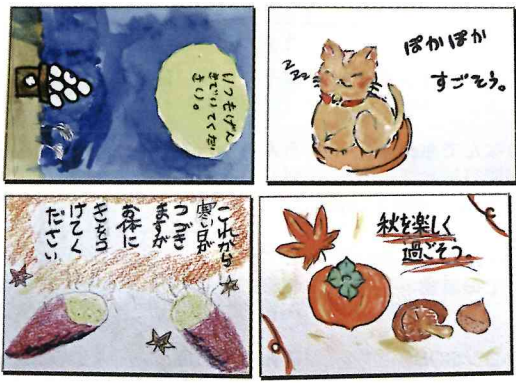 いつもげん
きでいてくだ
さい。
ぽかぽか
すごそう。
これから
寒い日が
つづき
ますが
お体に
きをつ
けてく
ださい
秋を楽しく
過ごそう。